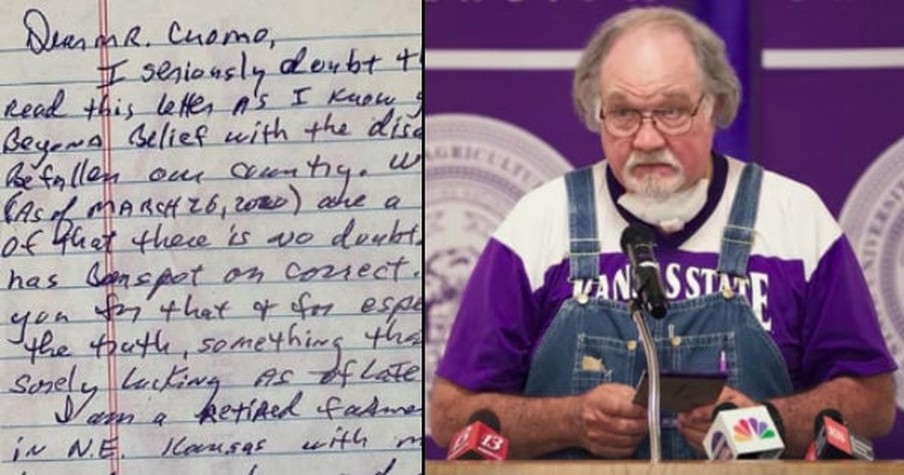 Dear MR. Cuomo,
I seriously doubt t
read this letter as I know y
Beyond Belief with the disa
Befallen our country. W
(As of MARCH 26, 2020) are a
Of that there is no doubt.
has been spot on correct.
you for that & for espe
the truth, something tha
sorely lacking AS of Late
I am a retired farme
in N.E. Kansas with m
KANSAS STATE
AGRICULTU
UNIVERSI
13
NBC